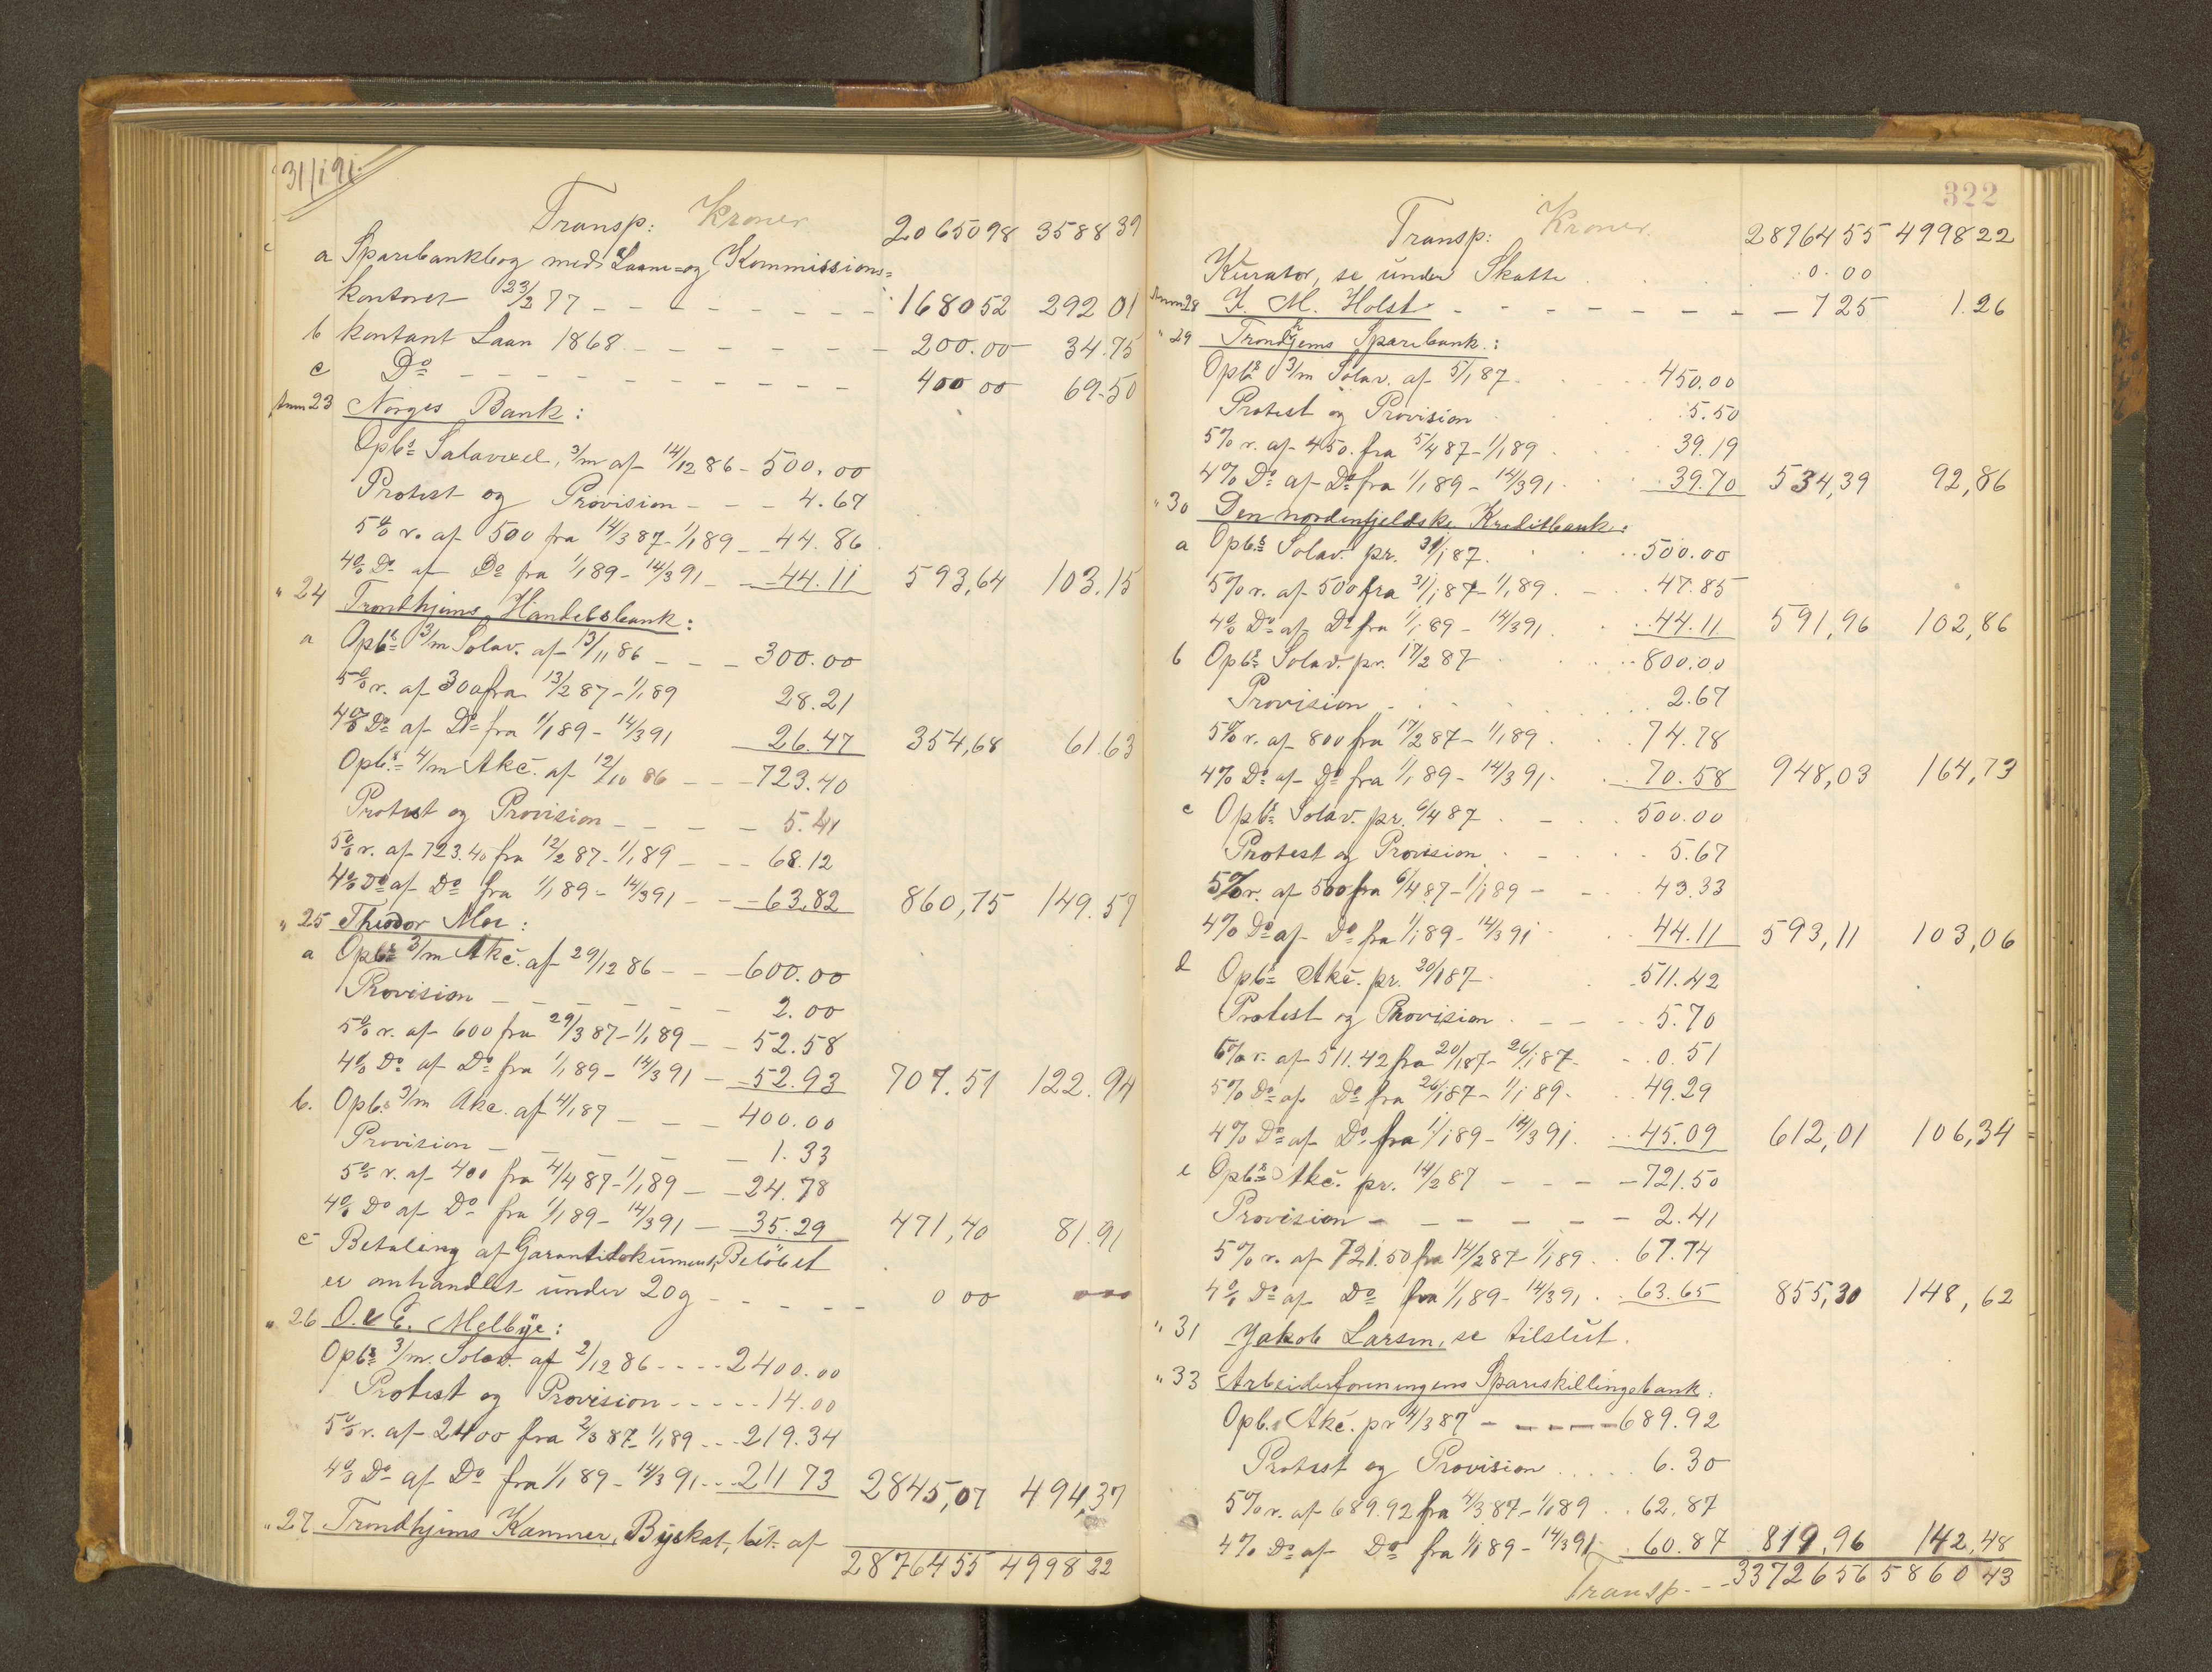 31/1 91.
Transp: Kroner 2065098 3588 39
a Sparebankbog med Laane- og Kommissions=
kontoret 23/2 77 - - - - - - - 1680 52 292 01
b kontant Laan 1868 - - - - - - 200.00 34.75
c Do - - - - - - - - - - 400 00 69.50
Anm 23 Norges Bank:
Opbs Solavexel, 3/m af 14/12 86 - 500.00
Protest og Provision - - - 4.67
5% r. af 500 fra 14/3 87 - 1/1 89 - - 44.86
4% Do af Do fra 1/1 89 - 14/3 91 - - 44.11 593,64 103.15
" 24 Trondhjems Handelsbank:
a Opbs 3/m Solav. af 13/11 86 - - - 300.00
5% r. af 300 fra 13/2 87 - 1/1 89 28.21
4% Do af Do fra 1/1 89 - 14/3 91 26.47 354,68 61.63
Opbs 4/m Akc. af 12/10 86 - - - 723.40
Protest og Provision - - - - 5.41
5% r. af 723.40 fra 12/2 87 - 1/1 89 - - - 68.12
4% Do af Do fra 1/1 89 - 14/3 91 - - - 63.82 860,75 149.57
" 25 Theodor Moe:
a Opbs 3/m Akc. af 29/12 86 - - - 600.00
Provision - - - - - - 2.00
5% r. af 600 fra 29/3 87 - 1/1 89 - - 52.58
4% Do af Do fra 1/1 89 - 14/3 91 - - 52.93 707.51 122.94
b. Opbs 3/m Akc. af 4/1 87 - - - 400.00
Provision - - - - - 1.33
5% r. af 400 fra 4/4 87 - 1/1 89 - - 24.78
4% Do af Do fra 1/1 89 - 14/3 91 - - 35.29 471,40 81.91
c Betaling af Garantidokument, Beløbet
er omhandlet under 20g - - - - - 0 00 0 00
" 26 O. & E. Melbye:
Opbs 3/m. Solav. af 2/12 86 - - - - 2400.00
Protest og Provision - - - - - 14.00
5% r. af 2400 fra 2/3 87 - 1/1 89 - - - 219.34
4% Do af Do fra 1/1 89 - 14/3 91 - - - 211 73 2845,07 494,37
" 27 Trondhjems Kæmner, Byskat, bet. af
2876455 4998 22
322
Transp: Kroner. 2876455 499822
Kurator, se under Skatte . . . 0.00
Anm 28 I. M. Holst - - - - - - - - 7 25 1.26
" 29 Trondhjems Sparebank.:
Opbs 3/m Solav. af 5/1 87 . . . 450.00
Protest og Provision . . . 5.50
5% r. af 450. fra 5/4 87 - 1/1 89 . . . 39.19
4% Do af Do fra 1/1 89 - 14/3 91 . . . 39.70 534,39 92,86
" 30 Den nordenfjeldske Kreditbank:
a Opbs Solav. pr. 31/1 87 . . . 500.00
5% r. af 500 fra 31/1 87 - 1/1 89 . - . . 47.85
4% Do af Do fra 1/1 89 - 14/3 91 . . . 44.11 591,96 102,86
b Opbs Solav. pr. 17/2 87 . . . 800.00
Provision . . . . . 2.67
5% r. af 800 fra 17/2 87 - 1/1 89 . . . 74.78
4% Do af Do fra 1/1 89 - 14/3 91 . . 70.58 948,03 164,73
c Opbs Solav. pr. 6/4 87 . - . . 500.00
Protest og Provision . - . . . 5.67
5% r. af 500 fra 6/4 87 - 1/1 89 - - . . 43.33
4% Do af Do fra 1/1 89 - 14/3 91 . . . 44.11 593,11 103,06
d Opbs Akc. pr. 20/1 87 - . . 511.42
Protest og Provision . - - - . 5.70
6% r. af 511.42 fra 20/1 87 - 26/1 87 - - . 0.51
5% Do af Do fra 26/1 87 - 1/1 89 - . . 49.29
4% Do af Do fra 1/1 89 - 14/3 91 . . . 45.09 612,01 106,34
e Opbs Akc. pr. 14/2 87 - - - - 721.50
Provision - - - - - - 2.41
5% r. af 721.50 fra 14/2 87 - 1/1 89 . . 67.74
4% Do af Do fra 1/1 89 - 14/3 91 . . 63.65 855,30 148,62
" 31 Jakob Larsen, se tilslut.
" 33 Arbeiderforeningens Spareskillingsbank:
Opbs Akc. pr 4/3 87 - - - - - 689.92
Protest og Provision . . . . . 6.30
5% r. af 689.92 fra 4/3 87 - 1/1 89 . . 62.87
4% Do af Do fra 1/1 89 - 14/3 91 . 60.87 819,96 142,48
Transp. - - 3372656 5860 43